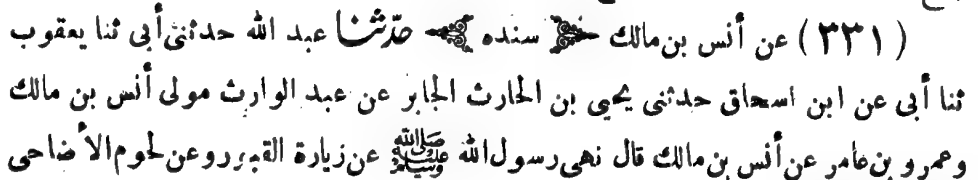 (٣٣١) عن أنس بن مالك ﴿ سنده ﴾ حدّثنا عبد الله حدثنى أبى ثنا يعقوب
ثنا أبى عن ابن اسحاق حدثنى يحيى بن الحارث الجابر عن عبد الوارث مولى أنس بن مالك
وعمرو بن عامر عن أنس بن مالك قال نهى رسول الله ﷺ عن زيارة القبور وعن لحوم الأضاحى